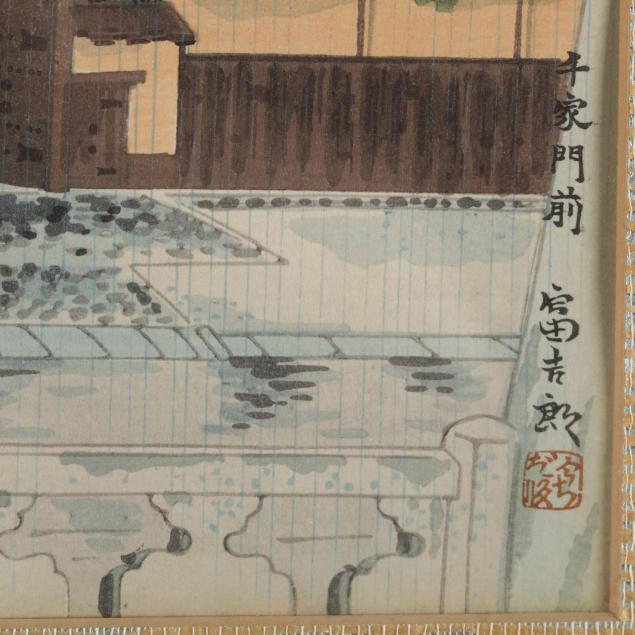 千家門前
富吉郎